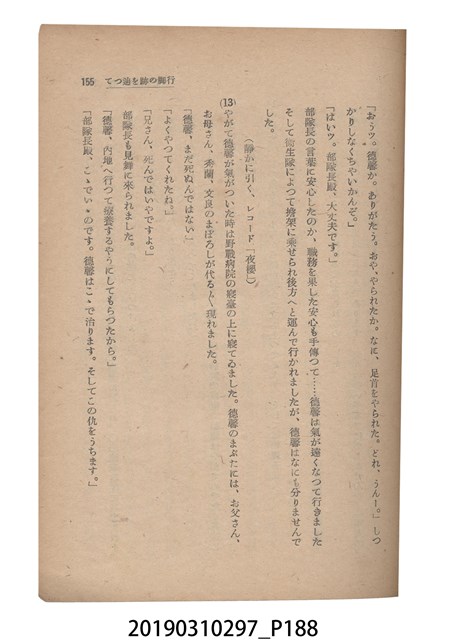 155 てつ追を跡の脚行
「おうッ。德馨か。ありがたう。おや、やられたか。なに、足首をやられた。どれ、うんー。」しつ
かりしなくちやいかんぞ。」
「はいッ。部隊長殿、大丈夫です。」
部隊長の言葉に安心したのか、職務を果した安心も手傳つて……德馨は氣が遠くなつて行きました
そして衛生隊によつて擔架に乘せられ後方へと運んで行かれましたが、德馨はなにも分りませんで
した。
(靜かに引く、レコード「夜櫻」)
(13) やがて德馨が氣がついた時は野戰病院の寢臺の上に寢てゐました。德馨のまぶたには、お父さん、
お母さん、秀蘭、文良のまぼろしが代る〲現れました。
「德馨、まだ死ぬんではない」
「よくやつてくれたね。」
「兄さん、死んではいやですよ。」
部隊長も見舞に來られました。
「德馨、内地へ行つて療養するやうにしてもらつたから。」
「部隊長殿、こゝでいゝのです。德馨はこゝで治ります。そしてこの仇をうちます。」
20190310297_P188